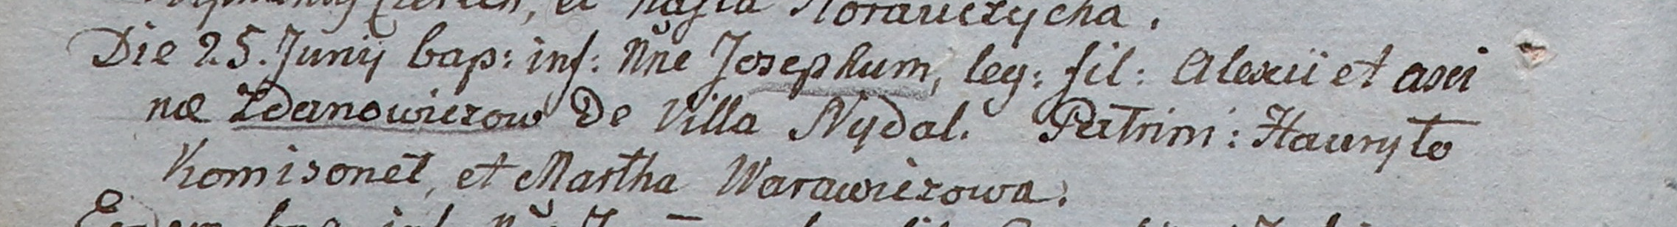 et Nasta Norawczycha.
Die 25. Junij bap: inf: Nne Josephum, leg: fil: Alexii et axi
næ Zdanowiczow De Villa Nydal. Patrini: Hauryto
Komisonet, et Martha Warawiczowa.